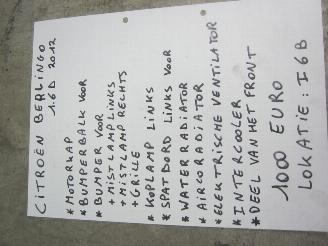 CITROËN BERLINGO
1.6 D 2012
* MOTORKAP
* BUMPERBALK VOOR
* BUMPER VOOR
+ MISTLAMP LINKS
+ MISTLAMP RECHTS
+ GRILLE
* KOPLAMP LINKS
* SPATBORD LINKS VOOR
* WATERRADIATOR
* AIRCORADIATOR
* ELEKTRISCHE VENTILATOR
* INTERCOOLER
* DEEL VAN HET FRONT
1000 EURO
LOKATIE: I6B